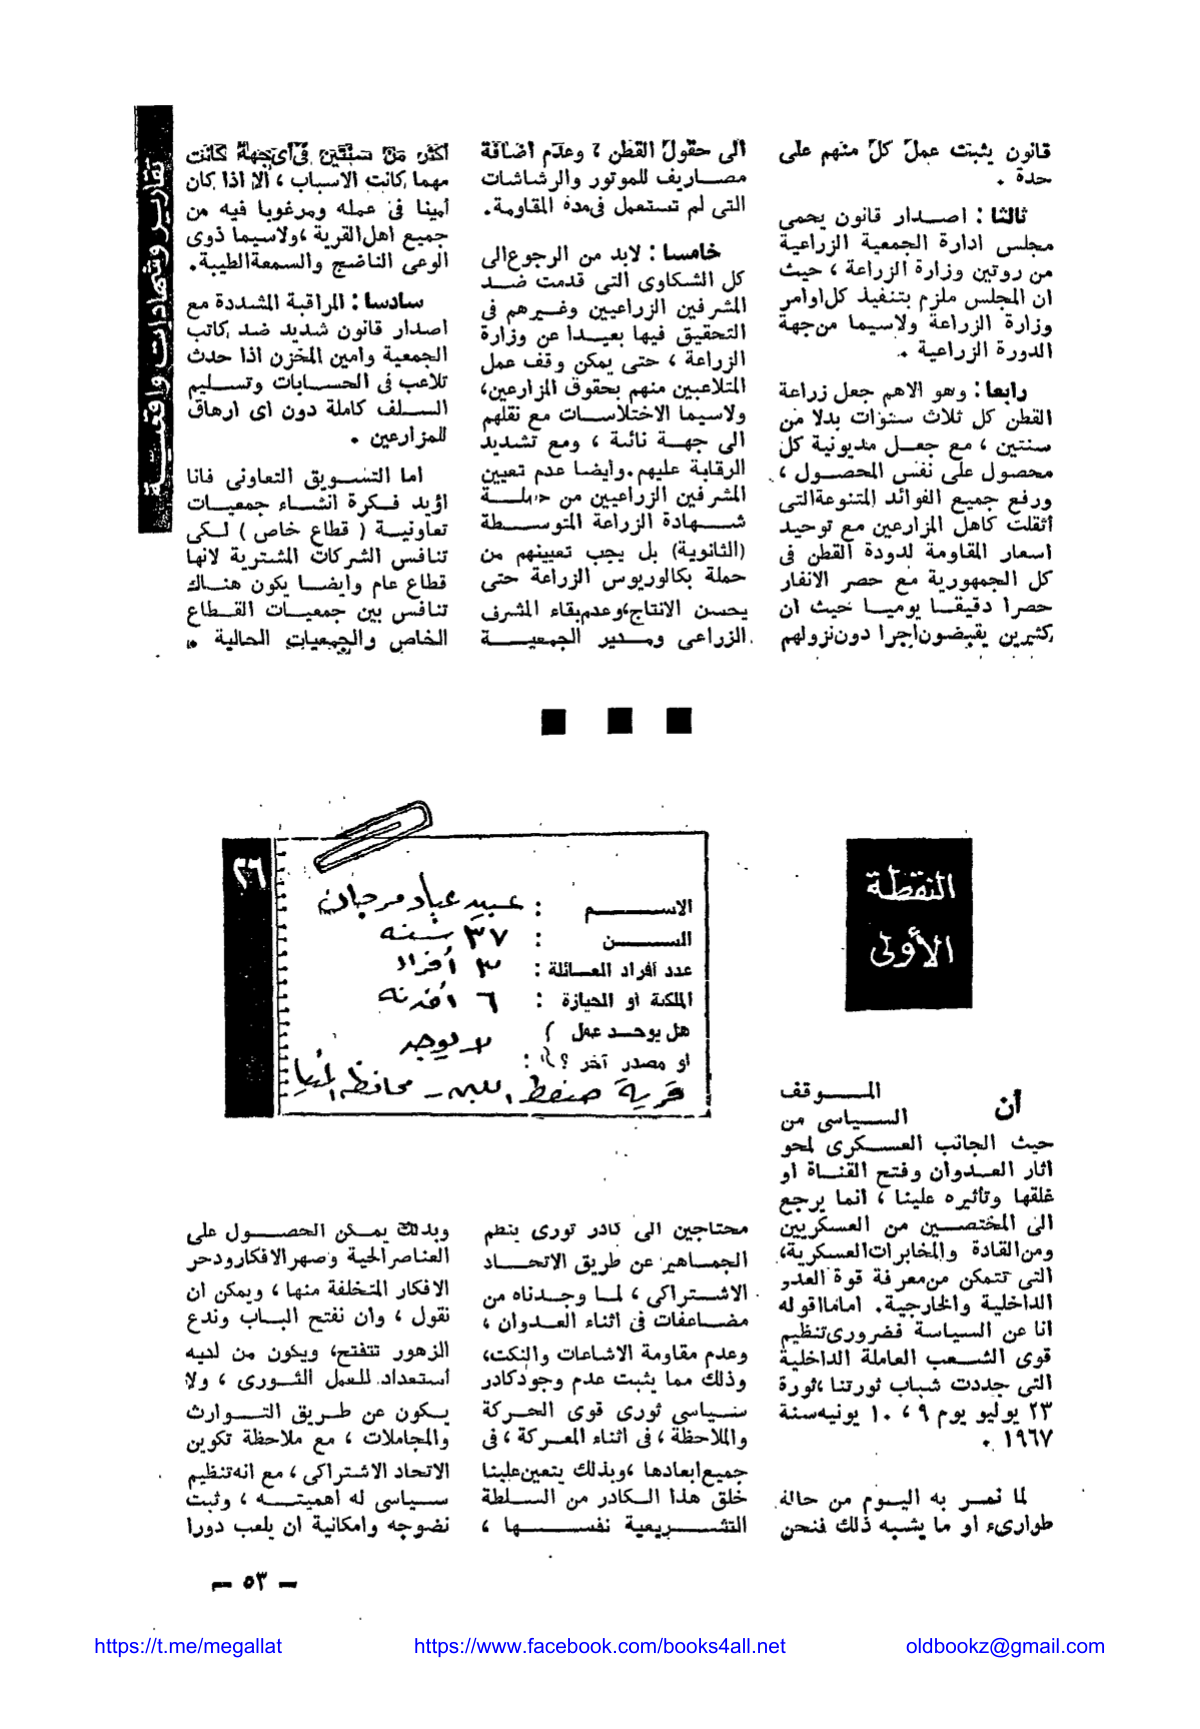 تقارير وشهادات واقعية
قانون يثبت عمل كل منهم على
حدة .
ثالثا : اصدار قانون يحمى
مجلس ادارة الجمعية الزراعية
من روتين وزارة الزراعة ، حيث
ان المجلس ملزم بتنفيذ كل اوامر
وزارة الزراعة ولاسيما من جهة
الدورة الزراعية .
رابعا : وهو الاهم جعل زراعة
القطن كل ثلاث سنوات بدلا من
سنتين ، مع جعل مديونية كل
محصول على نفس المحصول ،
ورفع جميع الفوائد المتنوعة التى
أثقلت كاهل المزارعين مع توحيد
اسعار المقاومة لدودة القطن فى
كل الجمهورية مع حصر الانفار
حصرا دقيقا يوميا حيث ان
كثيرين يقبضون اجرا دون نزولهم
الى حقول القطن ؟ وعدم اضافة
مصاريف للموتور والرشاشات
التى لم تستعمل فى مدة المقاومة .
خامسا : لابد من الرجوع الى
كل الشكاوى التى قدمت ضد
المشرفين الزراعيين وغيرهم فى
التحقيق فيها بعيدا عن وزارة
الزراعة ، حتى يمكن وقف عمل
المتلاعبين منهم بحقوق المزارعين،
ولاسيما الاختلاسات مع نقلهم
الى جهة نائية ، ومع تشديد
الرقابة عليهم . وايضا عدم تعيين
المشرفين الزراعيين من حملة
شهادة الزراعة المتوسطة
(الثانوية) بل يجب تعيينهم من
حملة بكالوريوس الزراعة حتى
يحسن الانتاج، وعدم بقاء المشرف
الزراعى ومدير الجمعية
اكثر من سنتين فى أى جهة كانت
مهما كانت الاسباب ، الا اذا كان
أمينا فى عمله ومرغوبا فيه من
جميع اهل القرية ، ولاسيما ذوى
الوعى الناضج والسمعة الطيبة .
سادسا : المراقبة المشددة مع
اصدار قانون شديد ضد كاتب
الجمعية وامين المخزن اذا حدث
تلاعب فى الحسابات وتسليم
السلف كاملة دون اى ارهاق
للمزارعين .
اما التسويق التعاونى فانا
اؤيد فكرة انشاء جمعيات
تعاونية ( قطاع خاص ) لكى
تنافس الشركات المشترية لانها
قطاع عام وايضا يكون هناك
تنافس بين جمعيات القطاع
الخاص والجمعيات الحالية .
النقطة
الأولى
٢٦
الاسم : عبيد عياد مرجان
السن : ٣٧ سنه
عدد أفراد العائلة : ٣ أفراد
الملكية أو الحيازة : ٦ أفدنه
هل يوجد عمل
او مصدر آخر ؟ : لا يوجد
قرية صنفط اللبن - محافظة المنيا
أن الموقف
السياسى من
حيث الجانب العسكرى لمحو
اثار العدوان وفتح القناة او
غلقها وتأثيره علينا ، انما يرجع
الى المختصين من العسكريين
ومن القادة والمخابرات العسكرية،
التى تتمكن من معرفة قوة العدو
الداخلية والخارجية . اما ما اقوله
انا عن السياسة فضرورى تنظيم
قوى الشعب العاملة الداخلية
التى جددت شباب ثورتنا ، ثورة
٢٣ يوليو يوم ٩ ، ١٠ يونيه سنة
١٩٦٧ .
لما نمر به اليوم من حالة
طوارىء او ما يشبه ذلك فنحن
محتاجين الى كادر ثورى ينظم
الجماهير عن طريق الاتحاد
الاشتراكى ، لما وجدناه من
مضاعفات فى اثناء العدوان ،
وعدم مقاومة الاشاعات والنكت،
وذلك مما يثبت عدم وجود كادر
سياسى ثورى قوى الحركة
والملاحظة ، فى اثناء المعركة ، فى
جميع ابعادها ، وبذلك يتعين علينا
خلق هذا الكادر من السلطة
التشريعية نفسها ،
وبذلك يمكن الحصول على
العناصر الحية وصهر الافكار ودحر
الافكار المتخلفة منها ، ويمكن ان
نقول ، وان نفتح الباب وندع
الزهور تتفتح، ويكون من لديه
أستعداد للعمل الثورى ، ولا
يكون عن طريق التوارث
والمجاملات ، مع ملاحظة تكوين
الاتحاد الاشتراكى ، مع انه تنظيم
سياسى له اهميته ، وثبت
نضوجه وامكانية ان يلعب دورا
— ٥٣ —
https://t.me/megallat https://www.facebook.com/books4all.net oldbookz@gmail.com